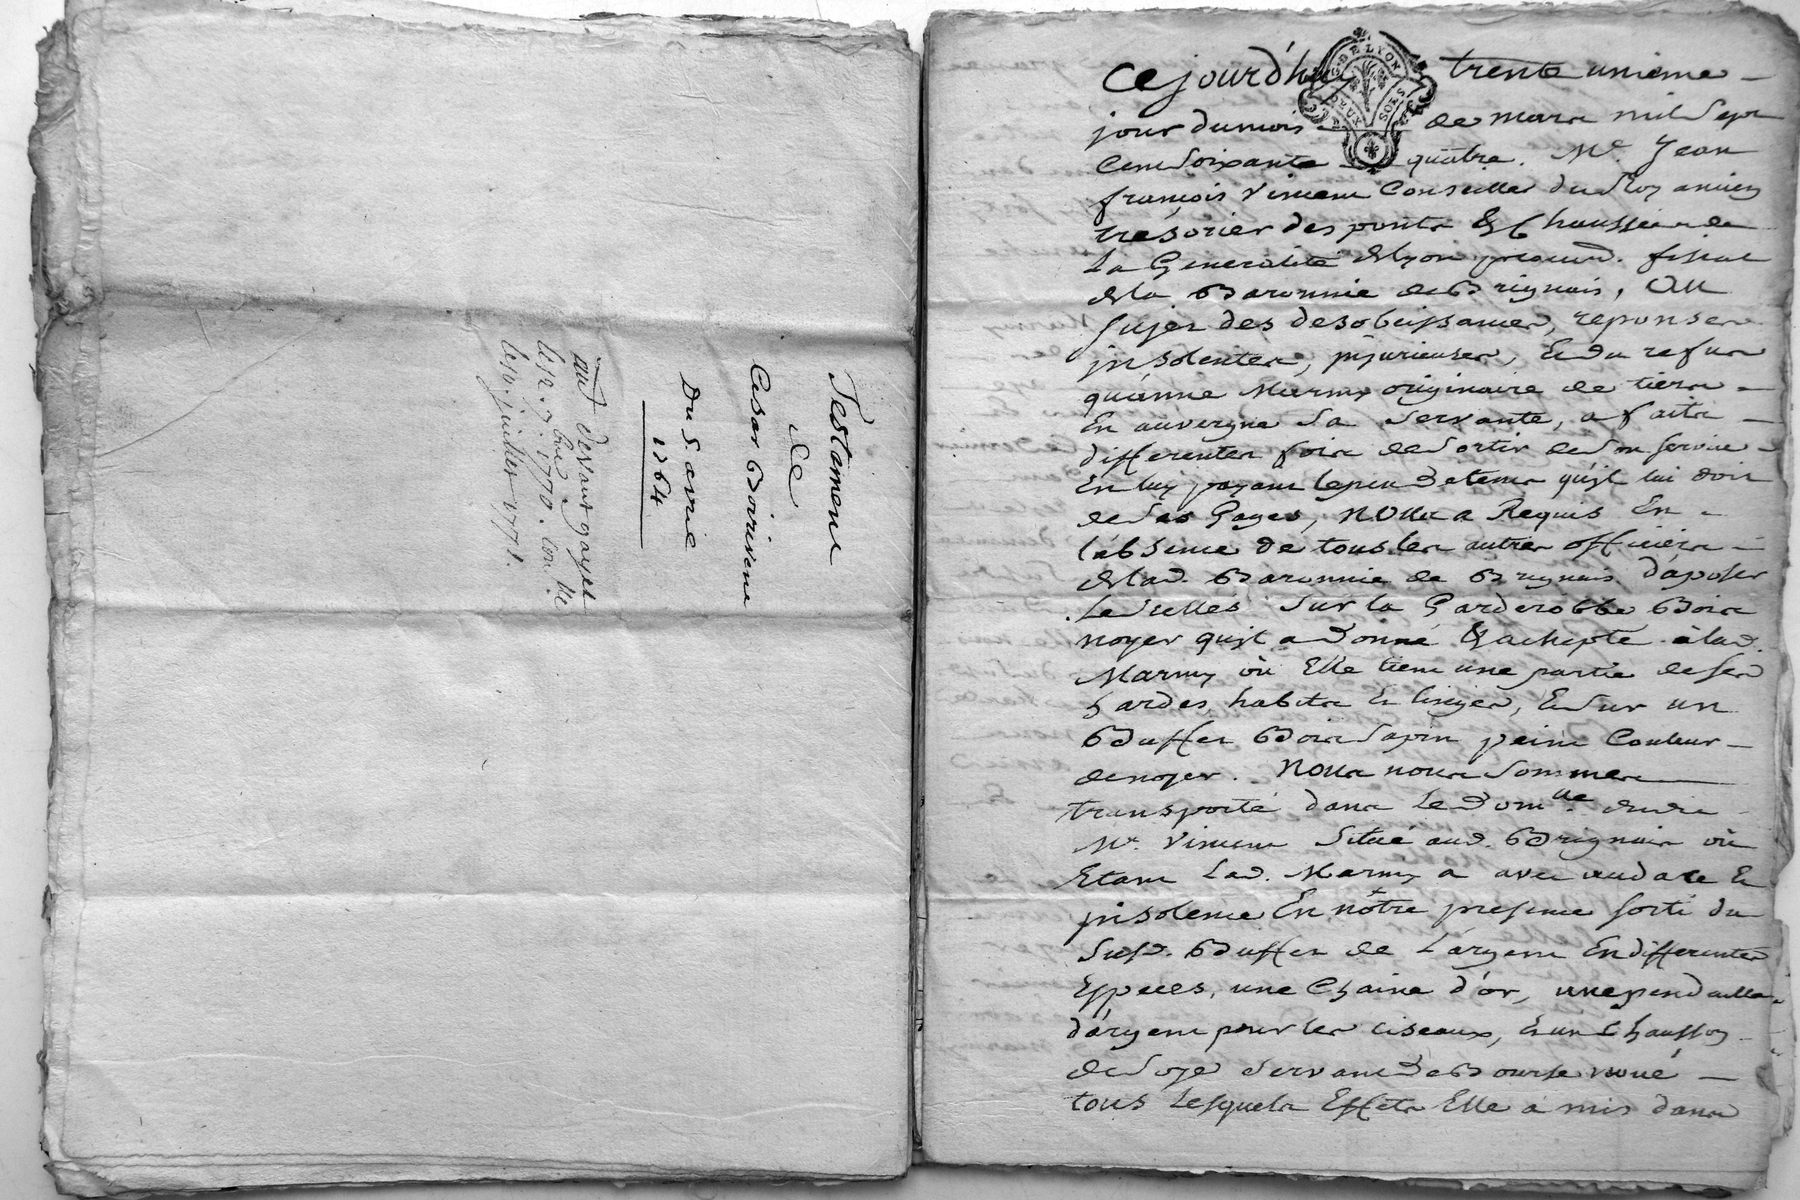 Testament
de
Cesar Boirivent
Du 5. avril
1764
aud. devant gayet
le 12. 7bre 1770. con lle
le 10. juillet 1771.
G. DE LYON
DEUX SOLS
Cejourd'huy trente unieme
jour du mois de mars mil Sept
Cent Soixante quatre. Me. Jean
françois Vincent Conseiller du Roy ancien
trésorier des ponts & Chaussées de
La Generalité de Lyon procurr. fiscal
de la Baronnie de Brignais, Au
Sujet des desobeissances, reponses
insolentes, injurieuses, et du refus
qu'anne Marmy originaire de tiers
En auvergne Sa Servante, a faits
differentes fois de Sortir de Son Service
En luy payant le peu de tems qu'il lui doit
de Ses Gages, nous a Requis En
l'absence de tous les autres officiers
de lad. Baronnie de Brignais d'aposer
Le Scellés Sur la Garderobbe Bois
noyer qu'il a donné & achepté à lad.
Marmy où Elle tient une partie de ses
hardes, habits & linges, Et Sur un
Buffet Bois Sapin peint Couleur
de noyer. nous nous Sommes
transporté dans Le domlle dudit
Mr. Vincent Situé aud. Brignais où
Etant Lad. Marmy a avec audace &
insolence En nôtre presence sorti du
Susd. Buffet de L'argent En differentes
Especes, une Chaine d'or, une pendaille
d'argent pour les ciseaux, & un Chausson
de Soye Servant de Bourse noué
tous Lesquels Effets Elle a mis dans